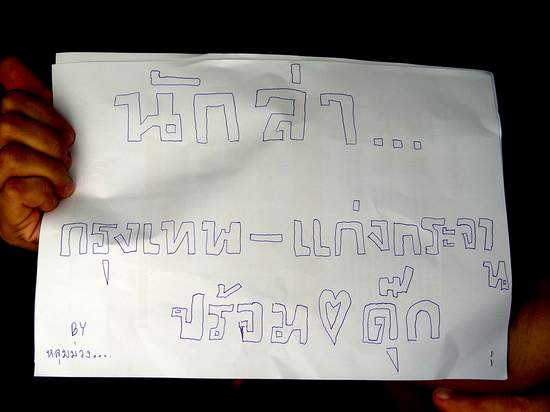 นักล่า...
กรุงเทพ-แก่งกระจาน
ปร้อม♡ตุ๊ก
BY
หลุมม่วง....